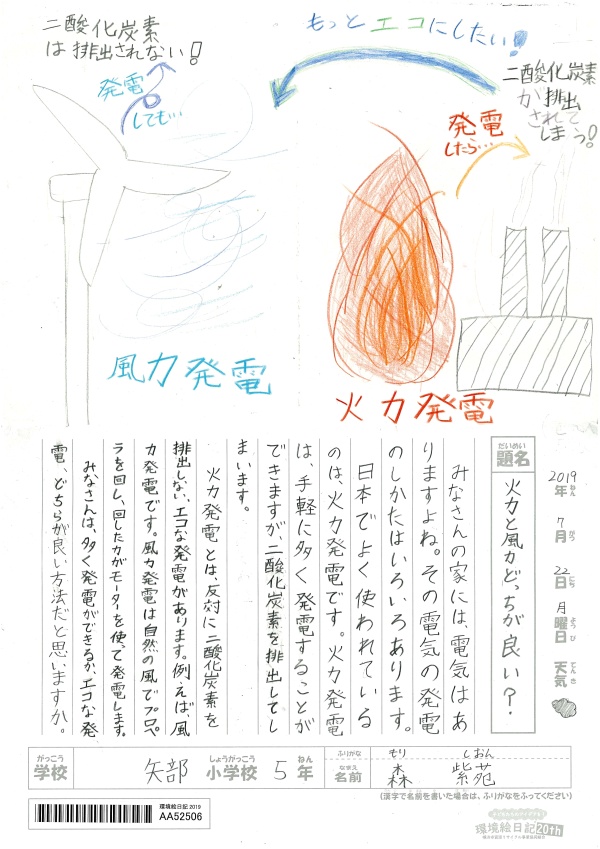 二酸化炭素
は排出されない!
発電
しても…
もっとエコにしたい!
二酸化炭素
が排出
されて
しまう!
発電
したら…
風力発電
火力発電
2019年 7月 22日 月曜日 天気
ねん がつ にち ようび てんき
だいめい
題名
火力と風力どっちが良い?
みなさんの家には、電気はあ
りますよね。その電気の発電
のしかたはいろいろあります。
日本でよく使われている
のは、火力発電です。火力発電
は、手軽に多く発電することが
できますが、二酸化炭素を排出してし
まいます。
火力発電とは、反対に二酸化炭素を
排出しない、エコな発電があります。例えば、風
力発電です。風力発電は自然の風でプロペ
ラを回し、回した力がモーターを使って発電します。
みなさんは、多く発電ができるか、エコな発
電、どちらが良い方法だと思いますか。
がっこう しょうがっこう ねん
学校 矢部 小学校 5年
ふりがな もり しおん
なまえ
名前 森 紫苑
(漢字で名前を書いた場合は、ふりがなをふってください)
環境絵日記 2019
AA52506
環境絵日記20th